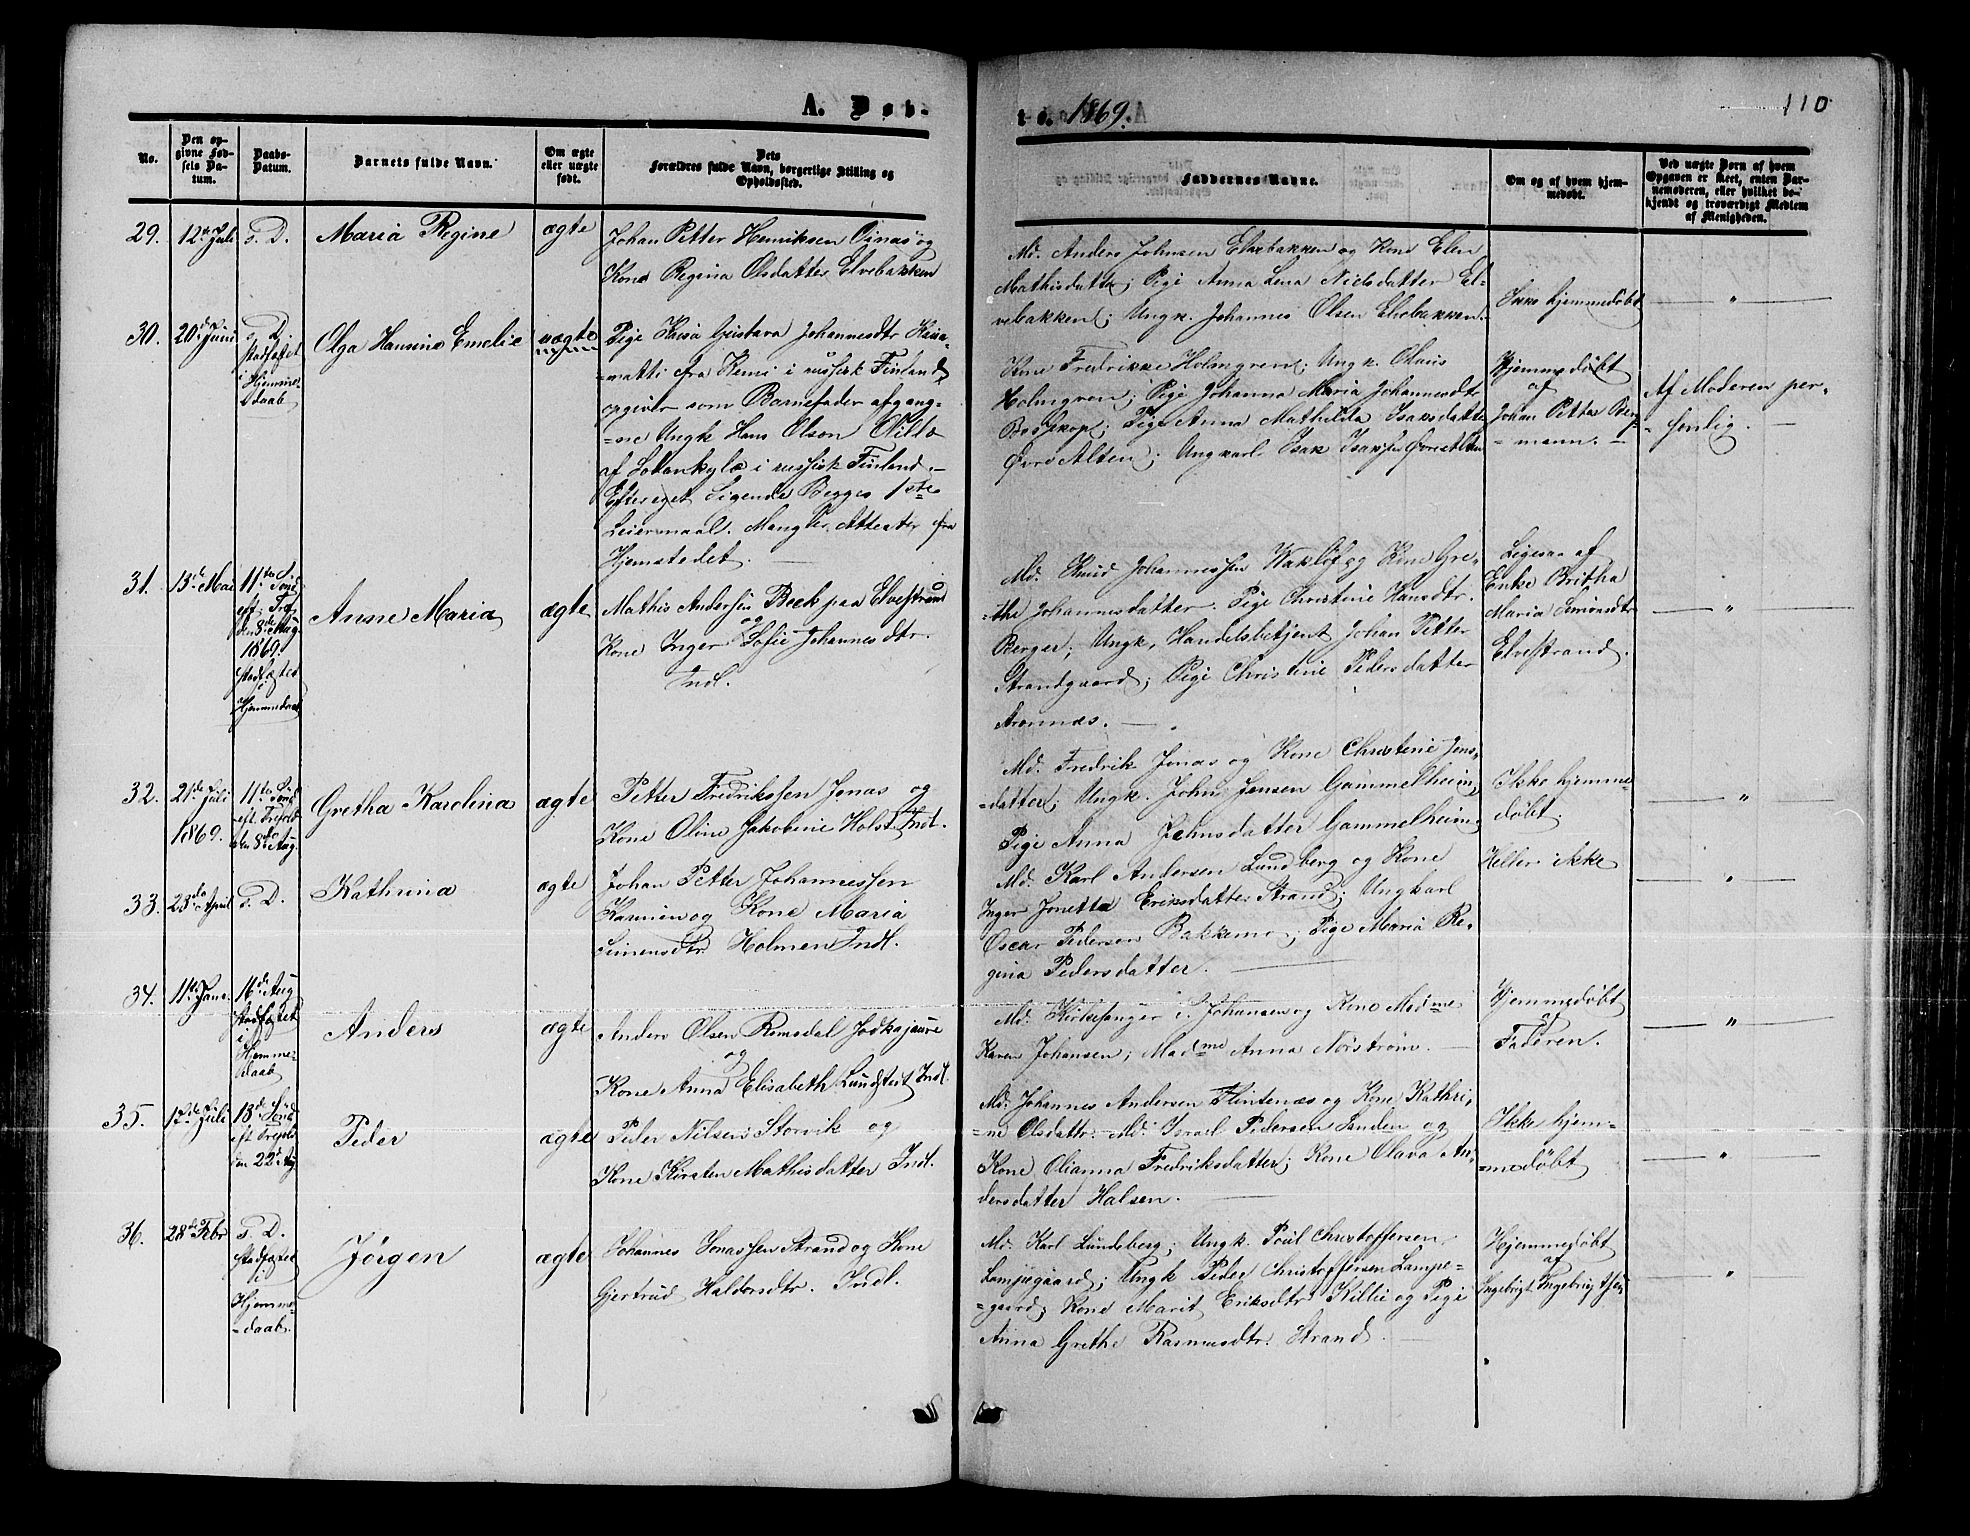 A. Døb-
te. 1869.
110
No.
Den op-
givne Fød-
sels Da-
tum.
Daabs-
Datum.
Barnets fulde Navn.
Om ægte
eller uægte
født.
Dets
Forældres fulde Navn, borgerlige Stilling og
Opholdssted.
Faddernes Navne.
Om og af hvem hjem-
medøbt.
Ved uægte Børn af hvem
Opgaven er skeet, enten Bar-
nemoderen, eller hvilket be-
kjendt og troværdigt Medlem
af Menigheden.
29.
12te Juli
s. D.
Maria Regine
ægte
Johan Petter Henriksen Oinas og
Kone Regina Olsdatter Elvebakken
Md. Anders Johnsen Elvebakken og Kone Elen
Mathisdatter; Pige Anna Lena Nielsdatter El-
vebakken; Ungk. Johannes Olsen Elvebakken.
Ikke hjemmedøbt
"
30.
20de Juni
s. D.
stadfæstet
i Hjemme-
daab
Olga Hansine Emelie
uægte
Pige Kaisa Gustava Johannesdtr
=matti fra Kemi i russisk Finland,
opgiver som Barnefader afgang-
=ne Ungk Hans Olson
af i russisk Finland.-
Efter eget Sigende Begges 1ste
Leiermaal. Mangler Attester fra
Hjemstedet.
Kone Fredrikke Holmgren; Ungk. Olaus
Holmgren; Pige Johanna Maria Johannesdtr
Bossekop; Pige Anna Mathilda Isaksdatter
Øvre Alten; Ungkarl Isak Isaksen Øvre Alten
Hjemmedøbt
af
Johan Petter Berg-
=mann.
Af Moderen per-
senlig.
31.
13de Mai
11te Sønd
eft. Tref
den 8de Aug
1869.
stadfæstet
i
Hjemmedaab
Anne Maria
ægte
Mathis Andersen Beck paa Elvestrand
og
Kone Inger Sofie Johannesdtr.
Indl.
Md. Knud Johannessen Wakløf og Kone Gre-
=the Johannesdatter. Pige Christine Hansdtr.
Berger; Ungk. Handelsbetjent Johan Petter
Strandgaard; Pige Christine Pedersdatter
Aronnæs.
Ligesaa af
Enke Britha
Maria Simonsdtr
Elvestrand.
"
32.
21de Juli
1869.
11te Sønd
eft. Trefold
den 8de Aug.
Gretha Karolina
ægte
Petter Fredrikssen Jonas og
Kone Oline Jakobine Holst Indl.
Md. Fredrik Jonas og Kone Christine Jens-
=datter; Ungk. John Jensen Gammelheim;
Pige Anna Johnsdatter Gammelheim
Ikke hjemme-
døbt.
"
33.
23de April
s. D.
Kathrina
ægte
Johan Petter Johannessen
og Kone Maria
Simensdtr. Holmen Indl.
Md. Karl Andersen Lundberg og Kone
Inger Jonetta Eriksdatter Strand; Ungkarl
Oscar Pedersen Bakkemo; Pige Maria Re-
gina Pedersdatter.
Heller ikke
"
34.
11te Janr.
16de Aug
stadfæstet
i
Hjemme-
daab
Anders
ægte
Anders Olsen Romsdal Jotkajaure
og
Kone Anna Elisabeth Lundstest Indl.
Md. Kirkesanger i. Johansen og Kone Madme
Karen Johansen; Madme Anna Norstrøm.
Hjemmedøbt
af
Faderen.
"
35.
1ste Juli
13de Sønd
eft Trefold
den 22de Aug
Peder
ægte
Peder Nilsen Storvik og
Kone Kirsten Mathisdatter Indl.
Md. Johannes Andersen Flintenæs og Kone Kathri-
=ne Olsdattr. Md. Israel Pedersen Sanden og
Kone Olianna Fredriksdatter; Kone Olava An-
dersdatter Halsen.
Ikke hjem-
=medøbt
"
36.
28de Febr
s. D.
stadfæstet
i
Hjemme-
=daab.
Jørgen
ægte
Johannes Jonassen Strand og Kone
Gjertrud Haldorsdtr. Indl.
Md. Karl Lundsberg; Ungk. Poul Christoffersen
Lampegaard; Ungk Peder Christoffersen Lampe=
=gaard; Kone Marit Eriksdtr Killie og Pige
Anna Grethe Rasmusdtr. Strand.
Hjemmedøbt
af
Ingebrigt Ingebrigtsen
"